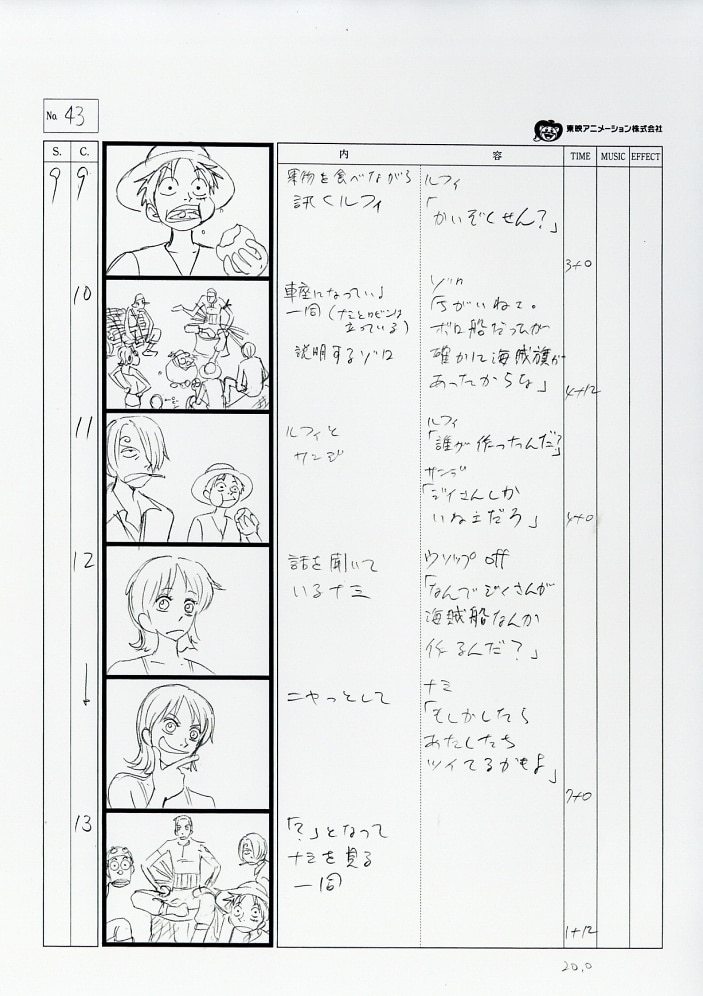 No. 43
東映アニメーション株式会社
S. C. 内 容 TIME MUSIC EFFECT
9 9
果物を食べながら
訊くルフィ
ルフィ
「かいぞくせん?」
3+0
10
車座になっている
一同(ナミとロビンは
立っている)
説明するゾロ
ゾロ
「ちがいねェ。
ボロ船だったが
確かに海賊旗が
あったからな」
4+12
11
ルフィと
サンジ
ルフィ
「誰が作ったんだ?」
サンジ
「ジイさんしか
いねェだろ」
4+0
12
話を聞いて
いるナミ
ウソップ off
「なんでじいさんが
海賊船なんか
作るんだ?」
ニヤっとして
ナミ
「もしかしたら
あたしたち
ツイてるかもよ」
7+0
13
「?」となって
ナミを見る
一同
1+12
20.0